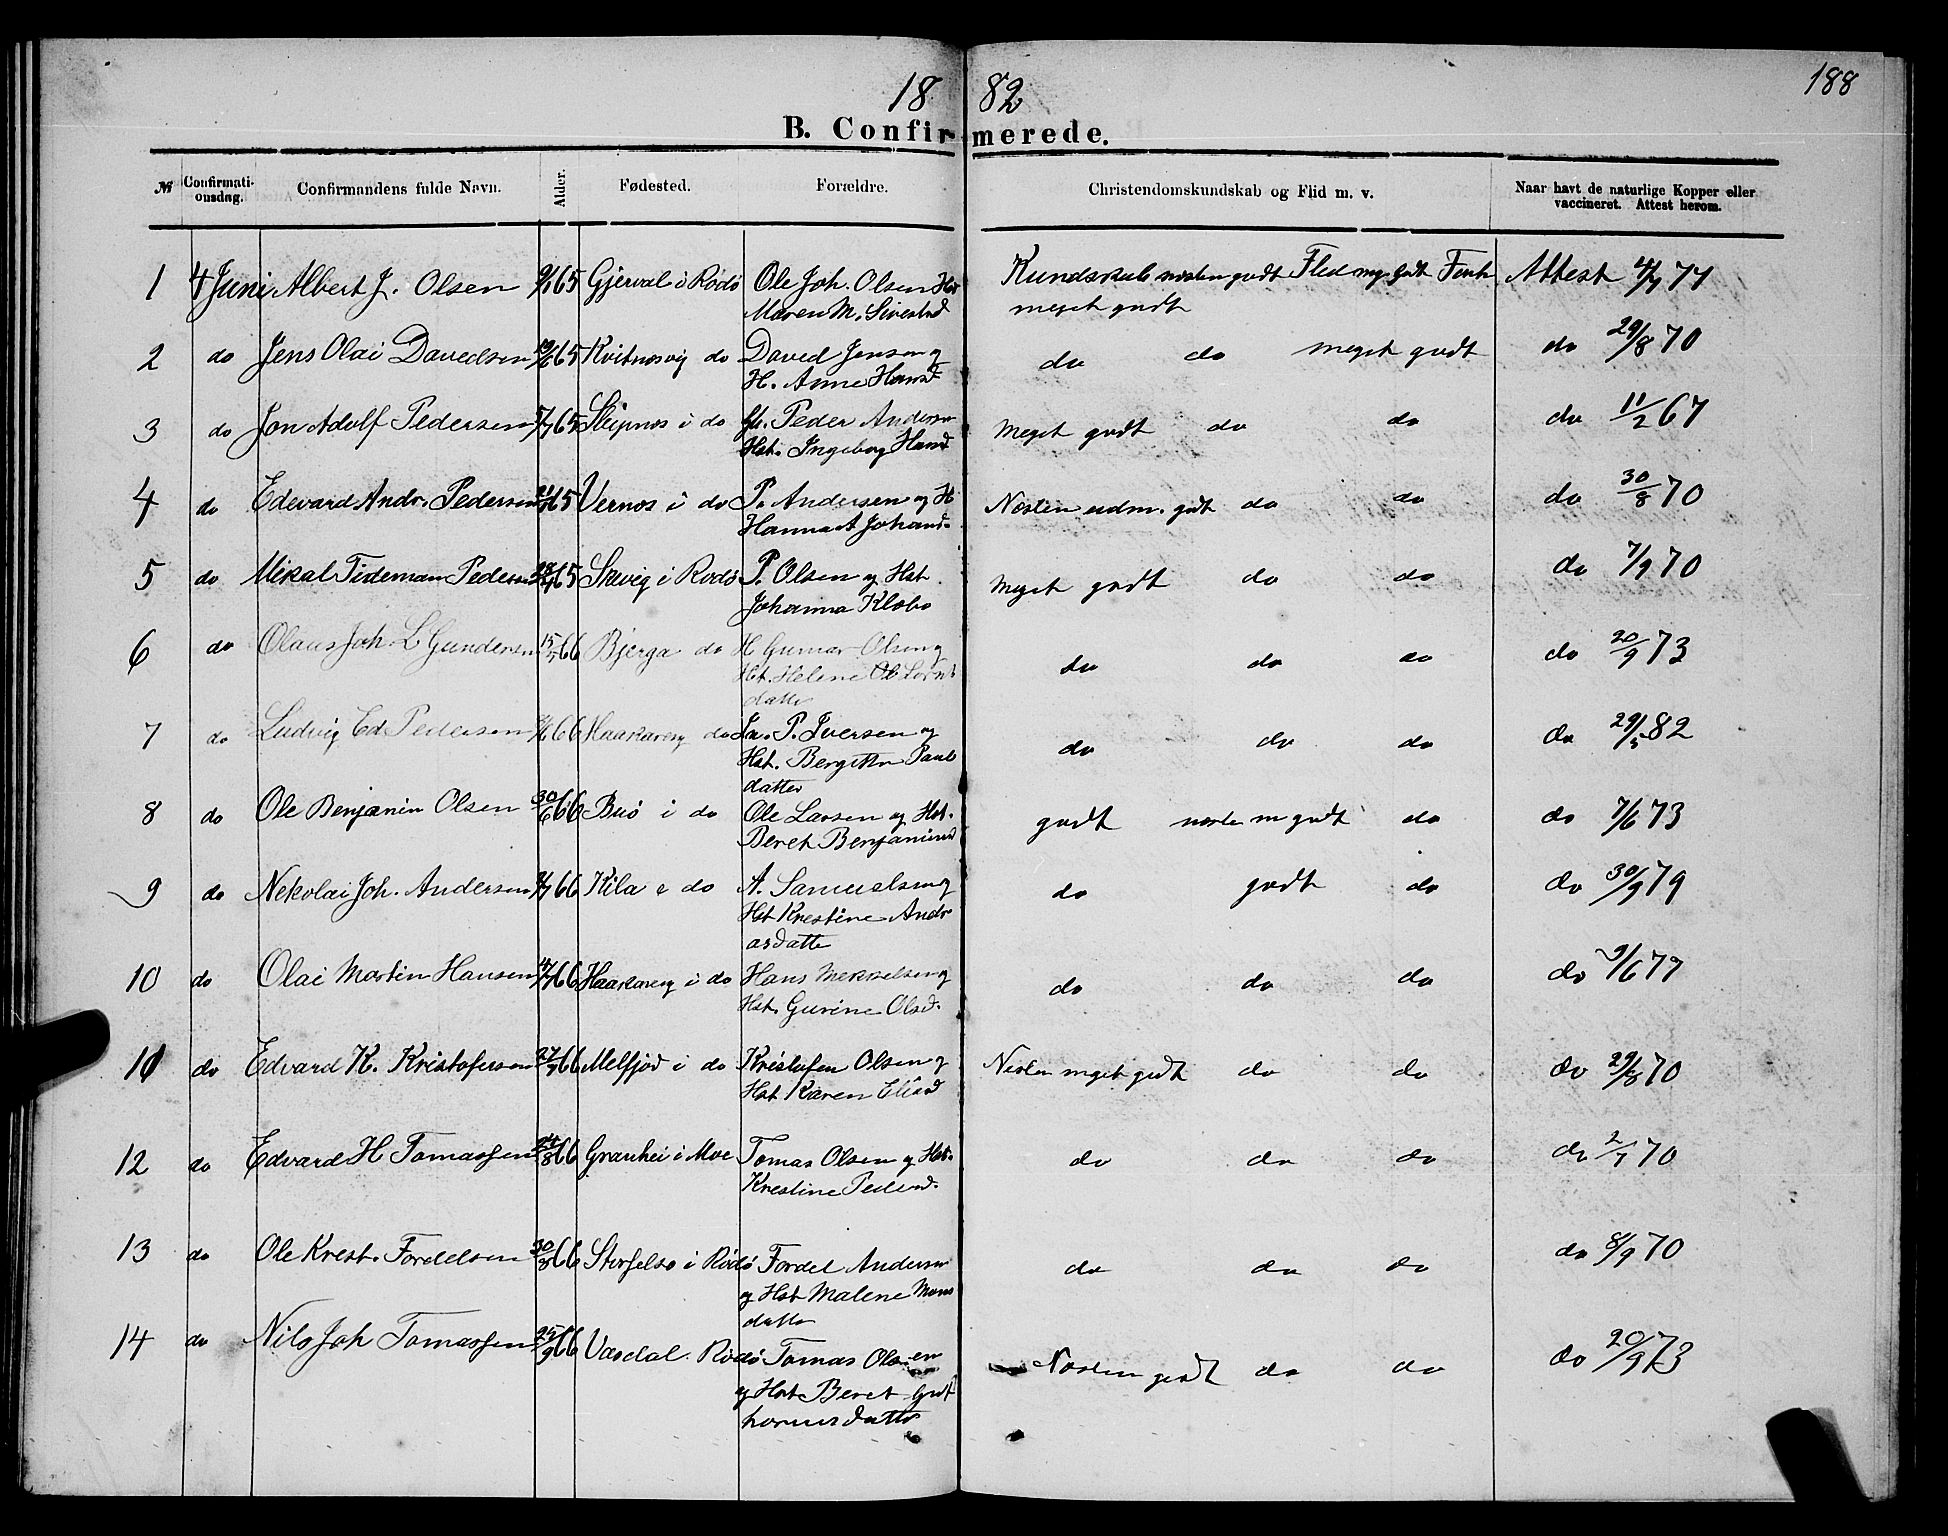 18 82
188
B. Confirmerede.
№ Confirmati-onsdag. Confirmandens fulde Navn. Alder. Fødested. Forældre. Christendomskundskab og Flid m. v. Naar havt de naturlige Kopper eller vaccineret. Attest herom.
1 4 Juni Albert J. Olsen 65 Gjerval i Rødø Ole Joh. Olsen Kundskab næsten godt Flid meg. godt Attest 4/7 77
Maren M. Sivertsd meget godt
2 do Jens Olai Davedsen 65 Kvitnesvig do David Jensen og do do meget godt do 29/8 70
H. Anne Hansd
3 do Jon Adolf Pedersen 65 Sleipnes i do Gb. Peder Andersen meget godt do do do 11/2 67
Hst. Ingeborg Hansd
4 do Edevard Andr. Pedersen 65 Vernes i do P. Andersen og H Næsten udm. godt do do do 30/8 70
Hanna A Johansd.
5 do Mikal Tideman Pedersen 65 Selvig i Rødø P. Olsen og Hst. meget godt do do do 7/9 70
Johanna Klæbo
6 do Olaus Joh. L Gundersen 66 Bjerga do H Gunnar Olsen og do do do do 20/9 73
Hst. Helene
datter
7 do Ludvig Ed Pedersen 66 Haakaveg do P. Iversen og do do do do 29/5 82
Hst. Bergitta Pauls
datter
8 do Ole Benjamin Olsen 30/6 66 Buø i do Ole Larsen og Hst. godt næsten m godt do do 7/6 73
Beret Benjaminsd
9 do Nekolai Joh. Andersen 66 Kila i do A. Samuelsen og do godt do do 30/9 79
Hst Krestine Andr
asdatter
10 do Olai Martin Hansen 66 Haakaveg i do Hans Mekkelsen og do do do do 9/6 77
Hst. Gurine Olsd.
11 do Edvard K. Kristofersen 27/7 66 Melfjord i do Kristofer Olsen og Næsten meget godt do do do 29/8 70
Hst Karen Eliasd
12 do Edvard H Tomassen 24/8 66 Granhei i Moe Tomas Olsen og Hst. do do do do 2/7 70
Krestine Pedersd.
13 do Ole Krest. Fordelsen 66 Storselsø i Rødø Fordel Andersen do do do do 8/9 70
og Hst Malene Mons
datter
14 do Nils Joh Tomassen 25/9 66 Værdal Rødø Tomas Olsen Næsten godt do do do 20/9 73
og Hst Beret Gut
hormsdatter